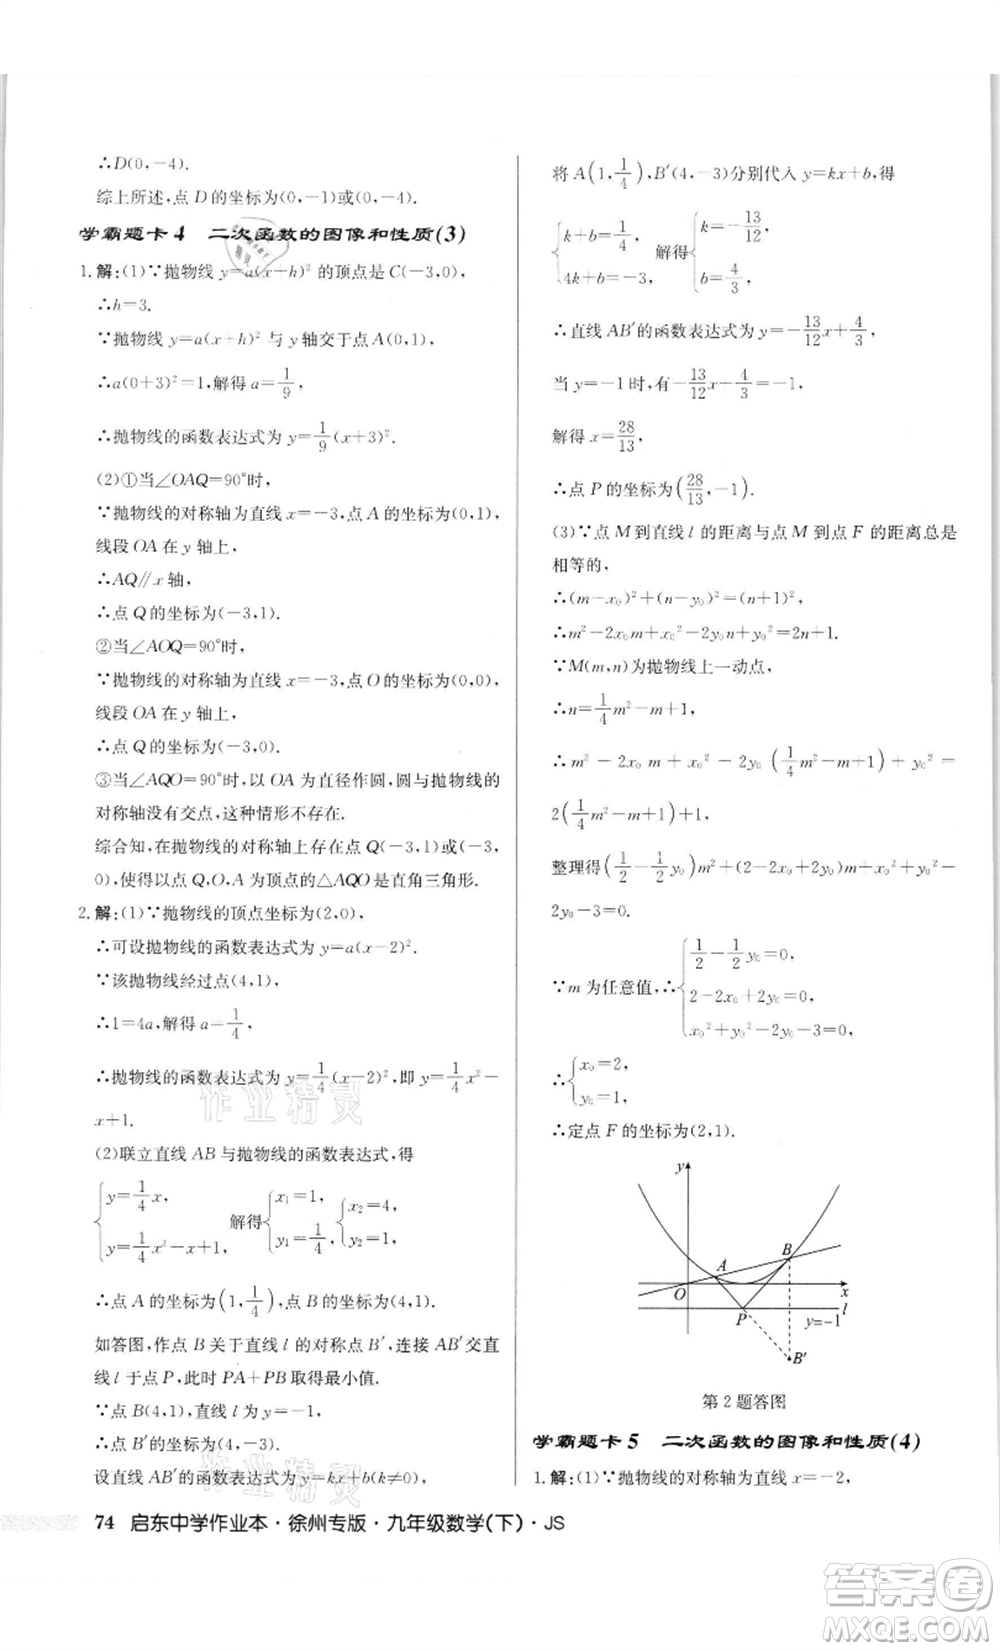 ∴D(0,-4).
综上所述,点 D 的坐标为(0,-1)或(0,-4).
学霸题卡 4 二次函数的图像和性质(3)
1.解:(1)∵抛物线 y=a(x+h)² 的顶点是 C(-3,0),
∴h=3.
∵抛物线 y=a(x+h)² 与 y 轴交于点 A(0,1),
∴a(0+3)²=1,解得 a=1/9,
∴抛物线的函数表达式为 y=1/9(x+3)².
(2)①当∠OAQ=90°时,
∵抛物线的对称轴为直线 x=-3,点 A 的坐标为(0,1),
线段 OA 在 y 轴上,
∴AQ∥x 轴,
∴点 Q 的坐标为(-3,1).
②当∠AOQ=90°时,
∵抛物线的对称轴为直线 x=-3,点 O 的坐标为(0,0),
线段 OA 在 y 轴上,
∴点 Q 的坐标为(-3,0).
③当∠AQO=90°时,以 OA 为直径作圆,圆与抛物线的
对称轴没有交点,这种情形不存在.
综合知,在抛物线的对称轴上存在点 Q(-3,1)或(-3,
0),使得以点 Q,O,A 为顶点的△AQO是直角三角形.
2.解:(1)∵抛物线的顶点坐标为(2,0),
∴可设抛物线的函数表达式为 y=a(x-2)².
∵该抛物线经过点(4,1),
∴1=4a,解得 a=1/4,
∴抛物线的函数表达式为 y=1/4(x-2)²,即 y=1/4x²-
x+1.
(2)联立直线 AB 与抛物线的函数表达式,得
{y=1/4x, y=1/4x²-x+1, 解得{x₁=1, y₁=1/4, {x₂=4, y₂=1,
∴点 A 的坐标为(1,1/4),点 B 的坐标为(4,1).
如答图,作点 B 关于直线 l 的对称点 B′,连接 AB′交直
线 l 于点 P,此时 PA+PB 取得最小值.
∵点 B(4,1),直线 l 为 y=-1,
∴点 B′的坐标为(4,-3).
设直线 AB′的函数表达式为 y=kx+b(k≠0),
将 A(1,1/4),B′(4,-3)分别代入 y=kx+b,得
{k+b=1/4, 4k+b=-3, 解得{k=-13/12, b=4/3,
∴直线 AB′的函数表达式为 y=-13/12x+4/3,
当 y=-1 时,有-13/12x+4/3=-1,
解得 x=28/13,
∴点 P 的坐标为(28/13,-1).
(3)∵点 M 到直线 l 的距离与点 M 到点 F 的距离总是
相等的,
∴(m-x₀)²+(n-y₀)²=(n+1)²,
∴m²-2x₀m+x₀²-2y₀n+y₀²=2n+1.
∵M(m,n)为抛物线上一动点,
∴n=1/4m²-m+1,
∴m²-2x₀m+x₀²-2y₀(1/4m²-m+1)+y₀²=
2(1/4m²-m+1)+1,
整理得(1/2-1/2y₀)m²+(2-2x₀+2y₀)m+x₀²+y₀²-
2y₀-3=0.
∵m 为任意值,∴{1/2-1/2y₀=0, 2-2x₀+2y₀=0, x₀²+y₀²-2y₀-3=0,
∴{x₀=2, y₀=1,
∴定点 F 的坐标为(2,1).
y
A
B
O
x
P
l
y=-1
B′
第 2 题答图
学霸题卡 5 二次函数的图像和性质(4)
1.解:(1)∵抛物线的对称轴为直线 x=-2,
74 启东中学作业本·徐州专版·九年级数学(下)·JS
作业精灵
作业精灵
答案圈
MXQE.COM